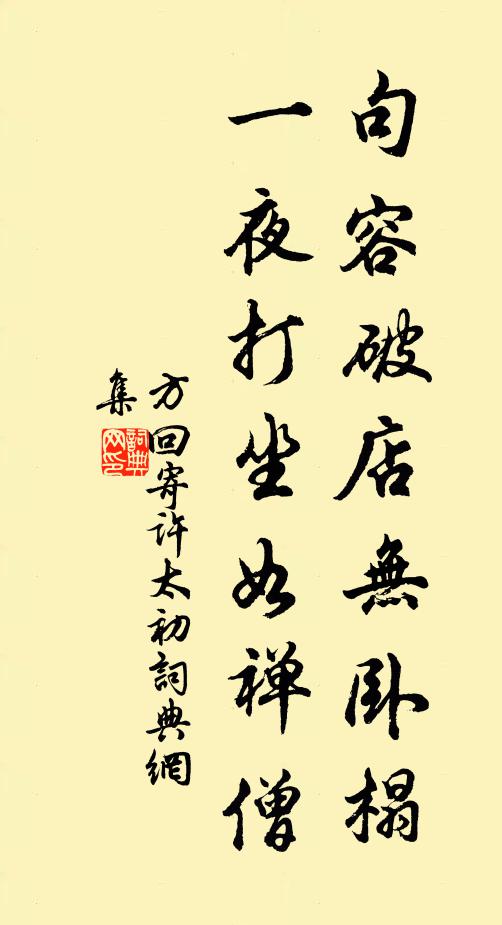 句容破店無卧榻
一夜打坐如禅僧
方回寄许太初詞典網
集
詞典
网印